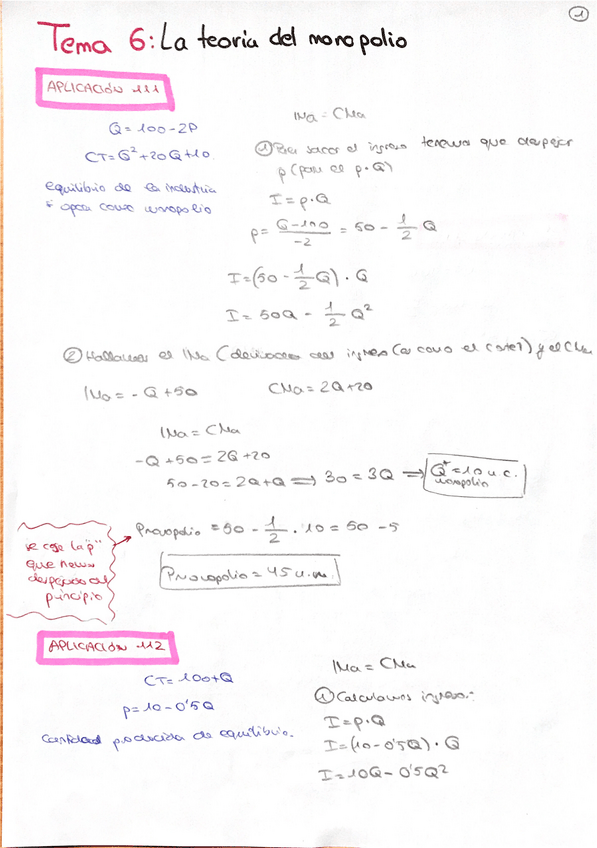 1
Tema 6: La teoría del monopolio
APLICACIÓN 111
Q = 100 - 2P
CT = Q² + 20Q + 10
equilibrio de la industria
opera como monopolio
IMa = CMa
① Para sacar el ingreso tenemos que despejar
p (para el p·Q)
I = p·Q
p = Q-100 / -2 = 50 - 1/2 Q
I = (50 - 1/2 Q) · Q
I = 50Q - 1/2 Q²
② Hallamos el IMa (derivadas del ingreso (es como el coste?) y el CMa
IMa = -Q + 50 CMa = 2Q + 20
IMa = CMa
-Q + 50 = 2Q + 20
50 - 20 = 2Q + Q ⟹ 30 = 3Q ⟹ Q* = 10 u.c.
monopolio
Pmonopolio = 50 - 1/2 · 10 = 50 - 5
se coge la "p"
que hemos
despejado al
principio
Pmonopolio = 45 u.m.
APLICACIÓN 112
CT = 100 + Q
p = 10 - 0'5Q
Cantidad producida de equilibrio.
IMa = CMa
① Calculamos ingreso:
I = p·Q
I = (10 - 0'5Q) · Q
I = 10Q - 0'5Q²